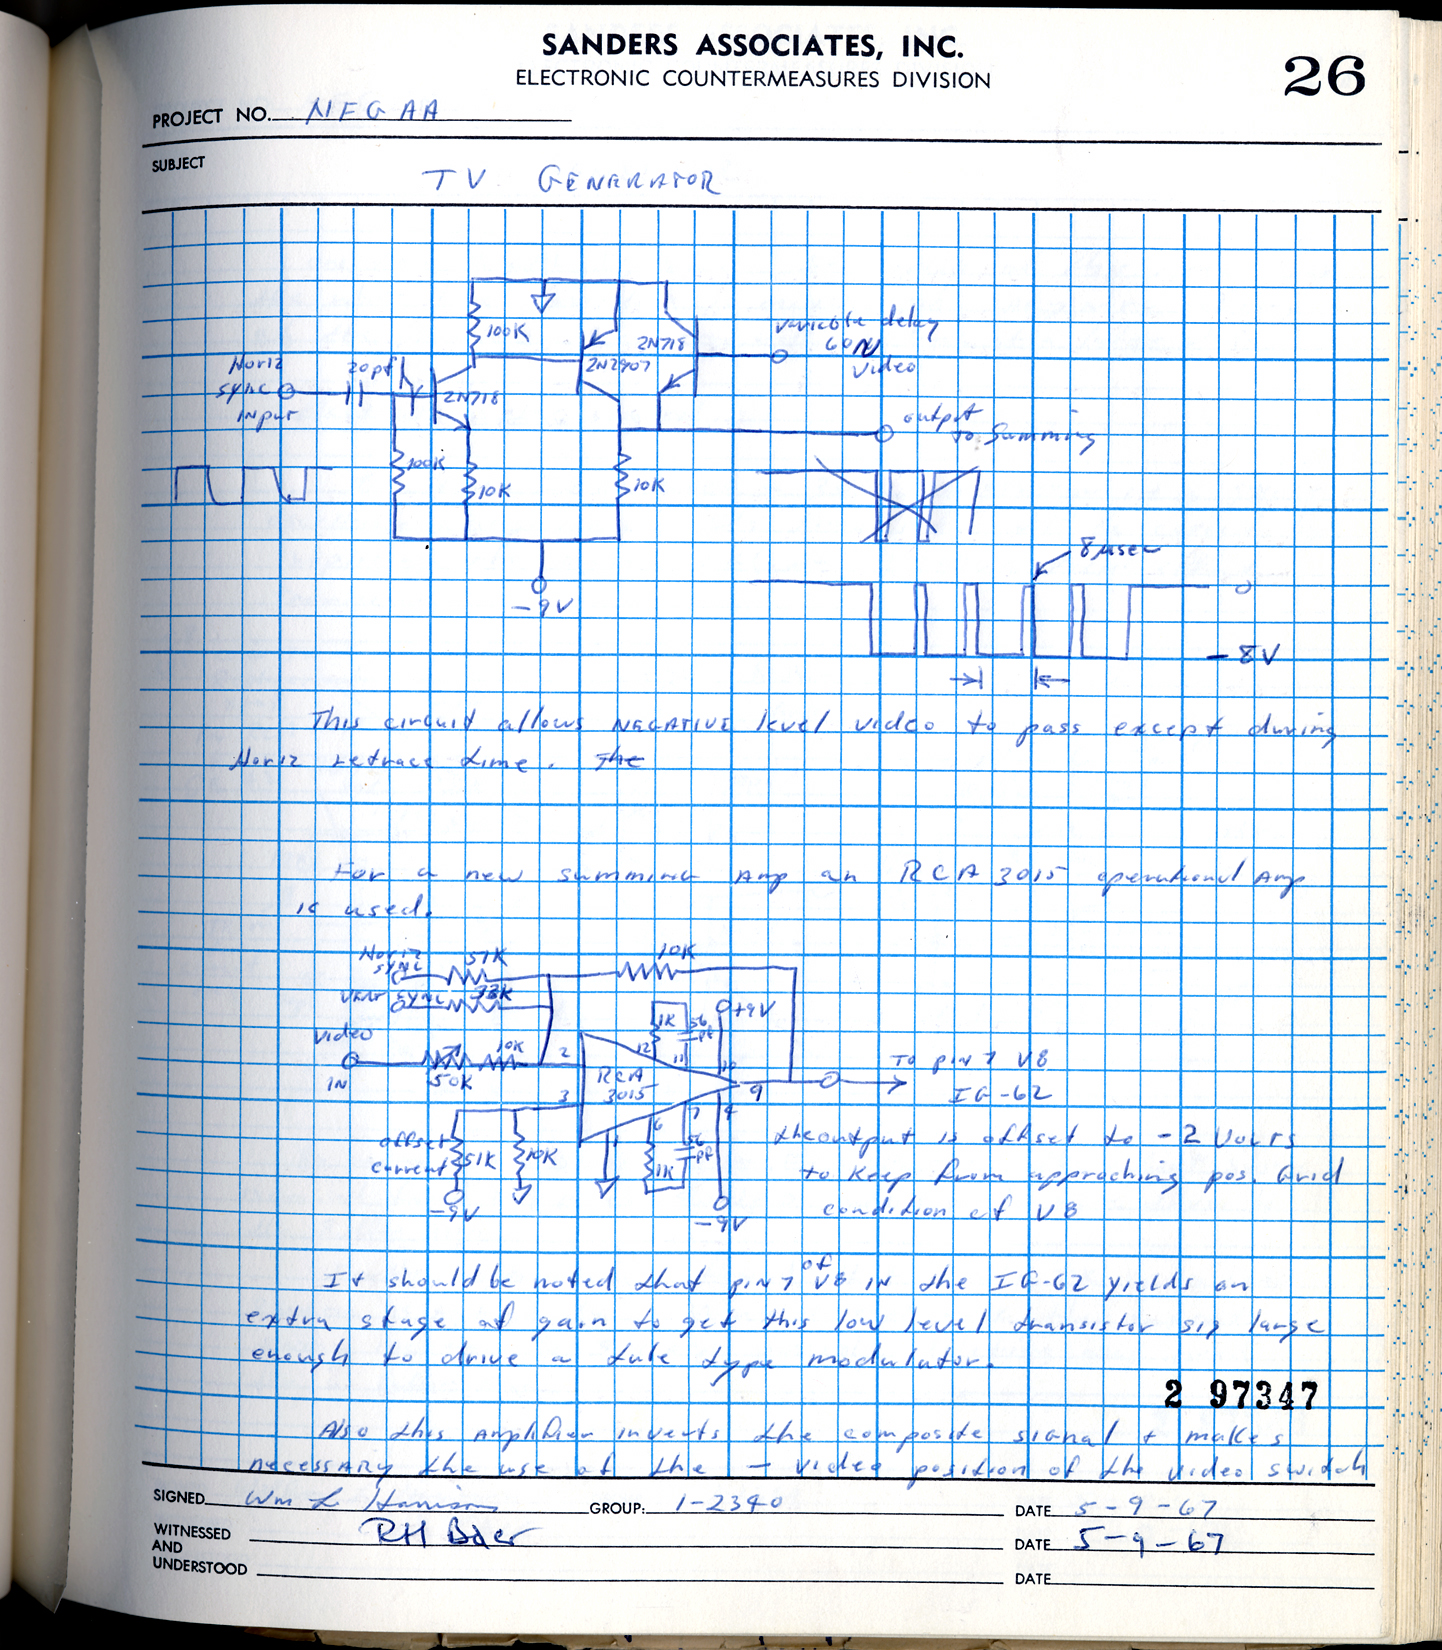 SANDERS ASSOCIATES, INC.
ELECTRONIC COUNTERMEASURES DIVISION
26
PROJECT NO. NEGAA
SUBJECT
TV GENERATOR
100K
2N718
variable delay
60N
Video
2N2907
Horiz
sync
Input
20pf
2N718
output
to Summing
100K
10K
10K
8 µsec
0
-9V
-8V
This circuit allows NEGATIVE level video to pass except during
Horiz retrace time. The
For a new summing Amp an RCA 3015 operational Amp
is used.
Horiz
SYNC
51K
10K
Vert SYNC
33K
1K
56
pf
+9V
Video
IN
50K
10K
2
12
11
10
RCA
3015
3
9
To pin 7 V8
IG-62
6
7
4
offset
current
51K
10K
1K
56
pf
-9V
-9V
the output is offset to -2 Volts
to keep from approaching pos. Grid
condition of V8
It should be noted that pin 7 of V8 IN the IG-62 yields an
extra stage of gain to get this low level transistor sig large
enough to drive a tube type modulator.
2 97347
Also this Amplifier inverts the composite signal + makes
necessary the use of the - video position of the video switch
SIGNED Wm L Harrison GROUP: 1-2340 DATE 5-9-67
WITNESSED AND UNDERSTOOD RH Baer DATE 5-9-67
DATE